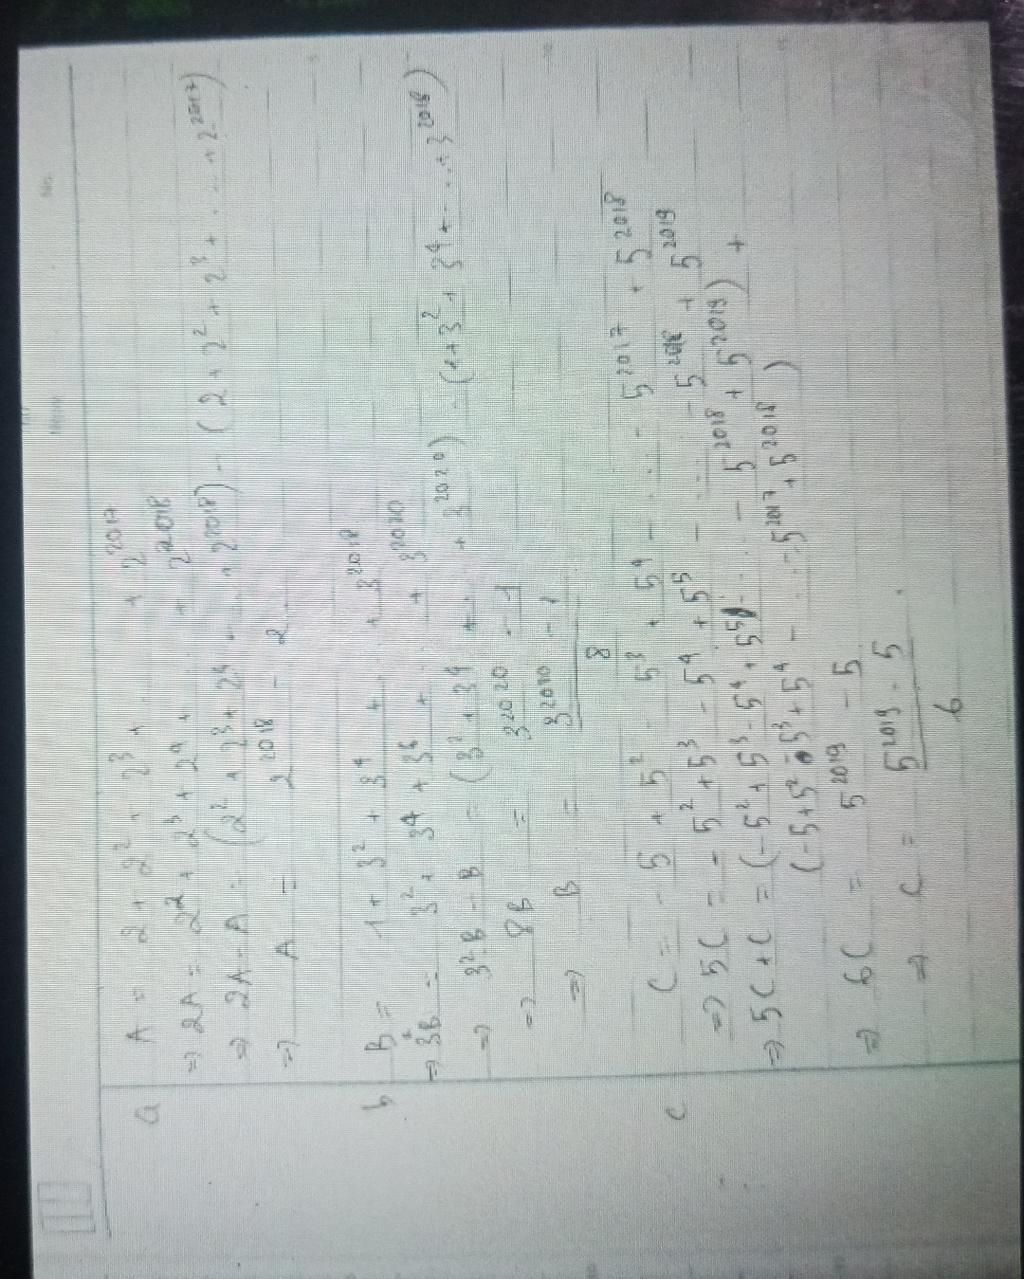 a
A = 2 + 2² + 2³ + + 2²⁰¹⁷
=> 2A = 2² + 2³ + 2⁴ + + 2²⁰¹⁸
=> 2A - A = (2² + 2³ + 2⁴ + ... + 2²⁰¹⁸) - (2 + 2² + 2³ + ... + 2²⁰¹⁷)
=> A = 2²⁰¹⁸ - 2
b
B = 1 + 3² + 3⁴ + + 3²⁰¹⁸
=> 3²B = 3² + 3⁴ + 3⁶ + + 3²⁰²⁰
=> 3²B - B = (3² + 3⁴ + ... + 3²⁰²⁰) - (1 + 3² + 3⁴ + ... + 3²⁰¹⁸)
=> 8B = 3²⁰²⁰ - 1
=> B = 3²⁰²⁰ - 1
8
c
C = - 5 + 5² - 5³ + 5⁴ - ... - 5²⁰¹⁷ + 5²⁰¹⁸
=> 5C = - 5² + 5³ - 5⁴ + 5⁵ - ... - 5²⁰¹⁸ + 5²⁰¹⁹
=> 5C + C = (- 5² + 5³ - 5⁴ + 5⁵ - ... - 5²⁰¹⁸ + 5²⁰¹⁹) +
(- 5 + 5² - 5³ + 5⁴ - ... - 5²⁰¹⁷ + 5²⁰¹⁸)
=> 6C = 5²⁰¹⁹ - 5
=> C = 5²⁰¹⁹ - 5
6